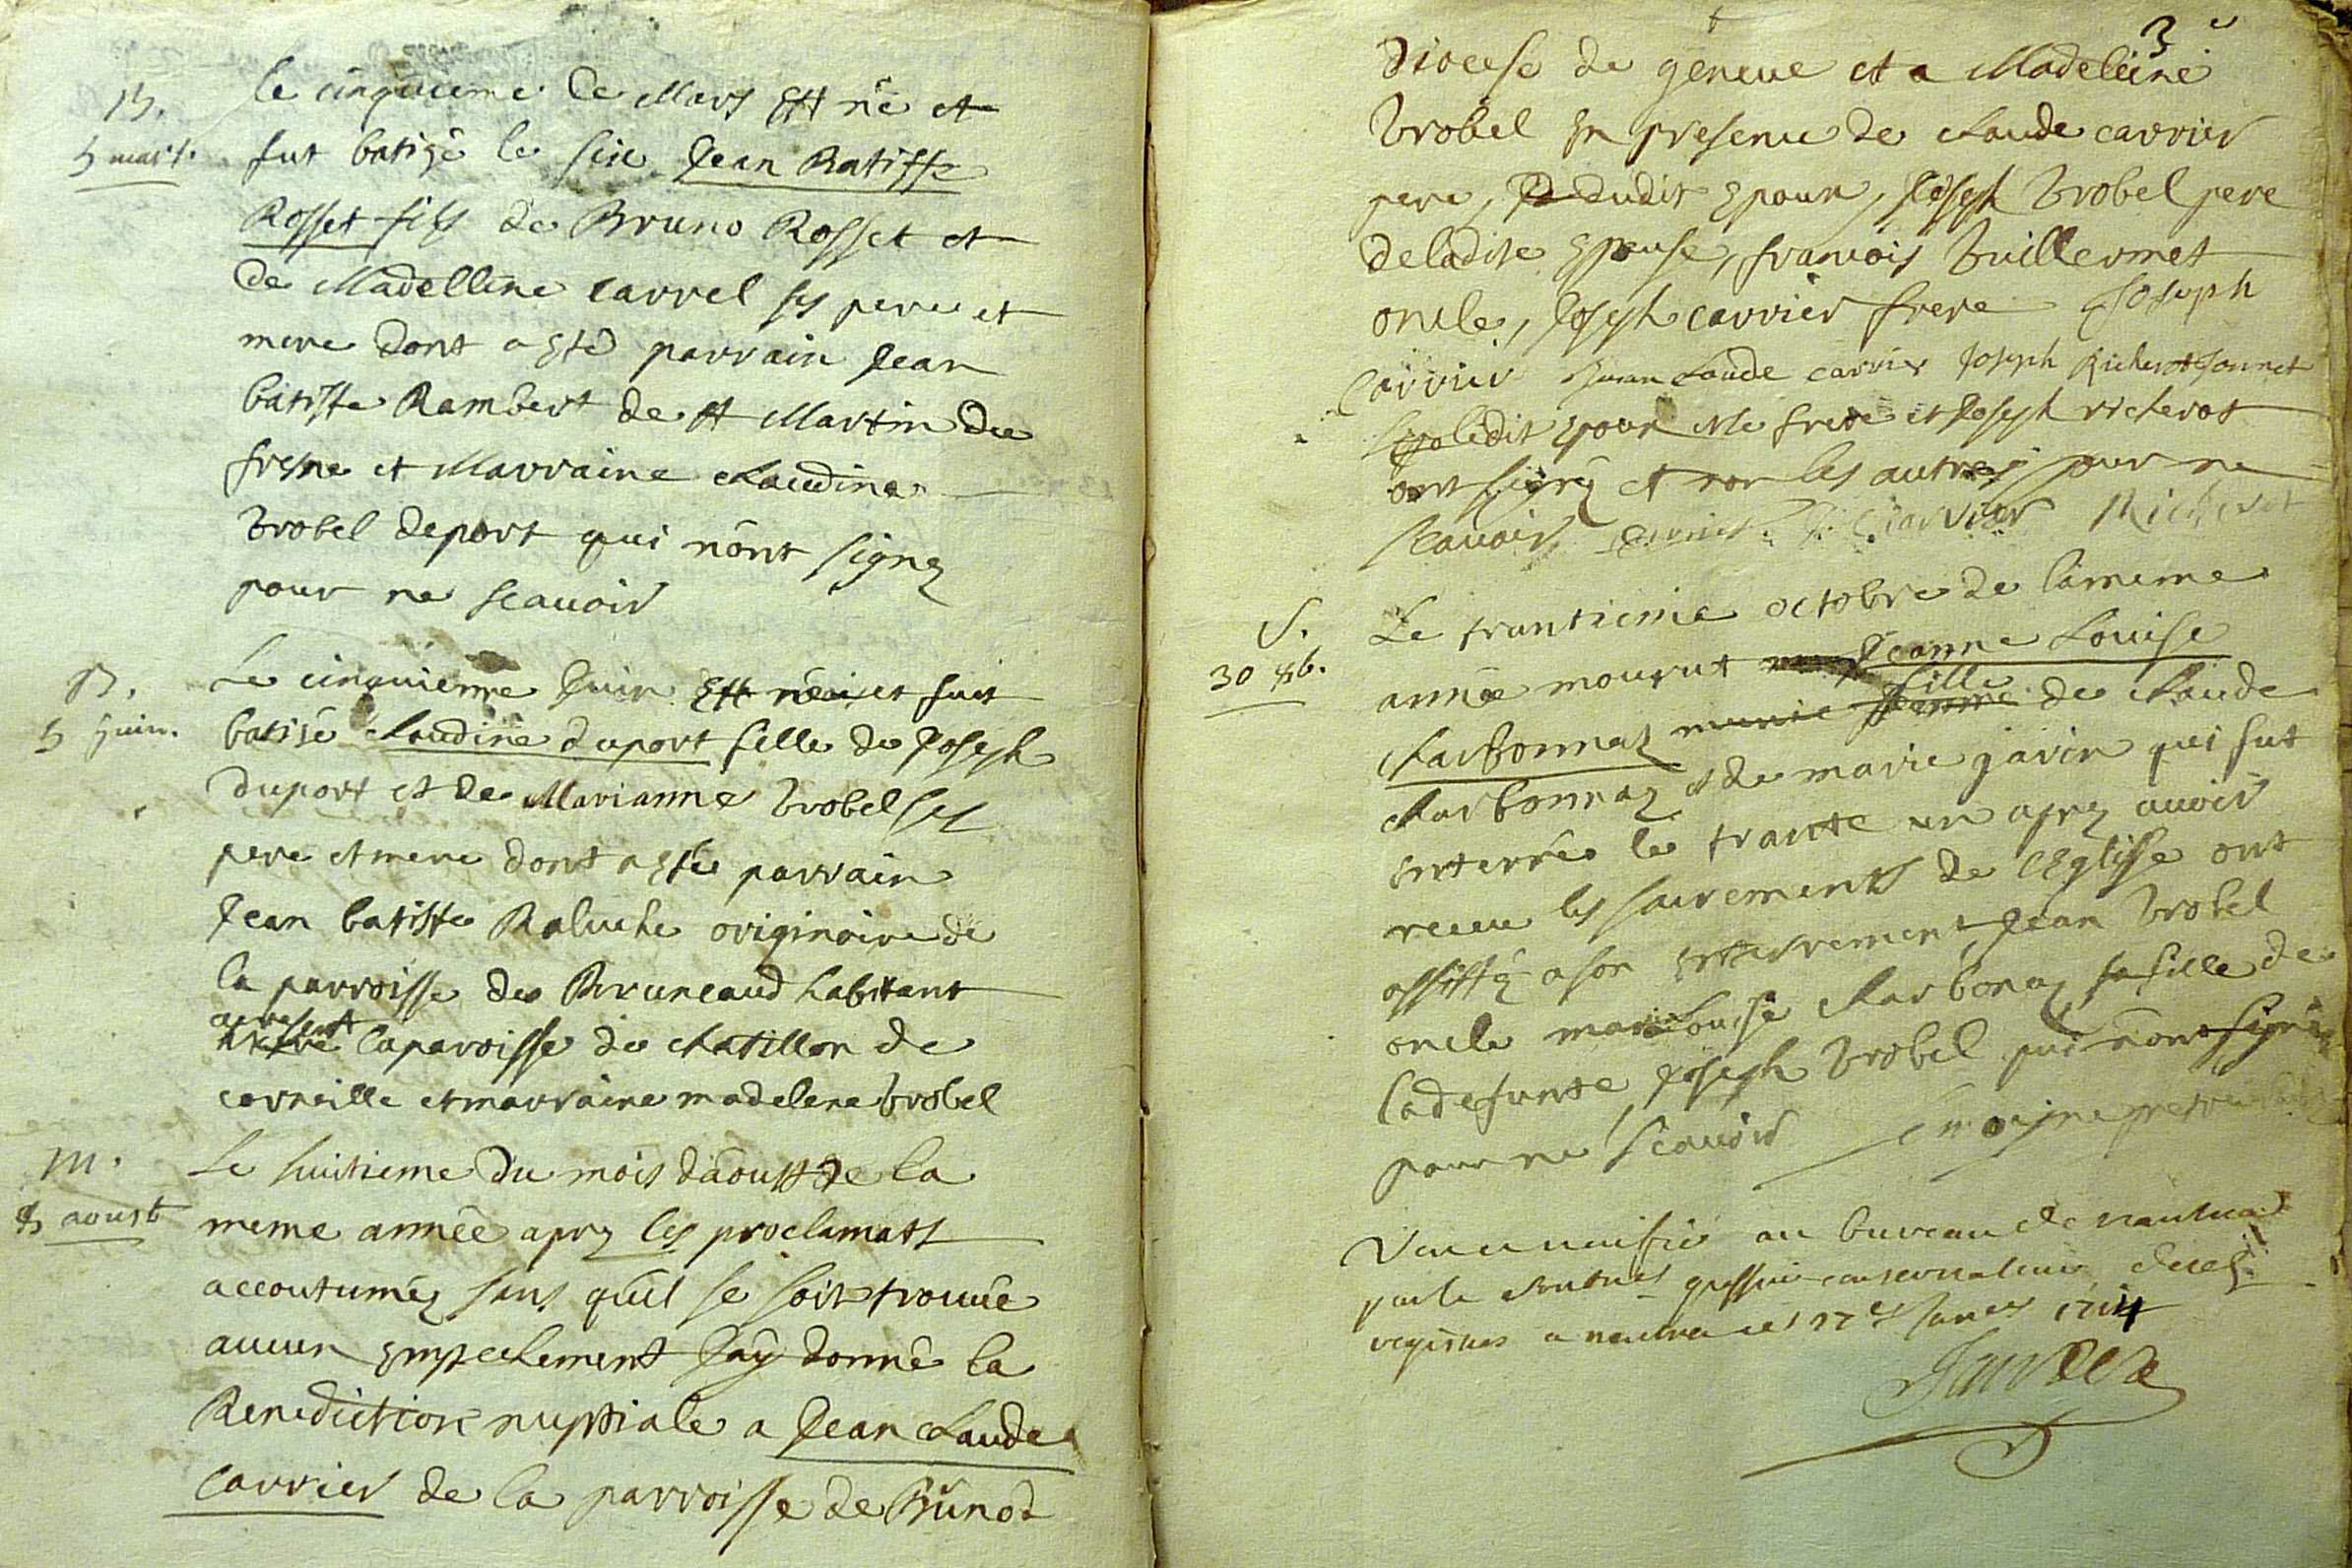 B.
5 mars.
le cinquieme de Mars Est né et
fut batisé le sixe Jean Batiste
Rosset fils de Bruno Rosset et
de Madelleine Carrel ses pere et
mere dont a esté parrain Jean
batiste Rambert de st Martin du
fresne et Marraine Claudine
Brobel deport qui nônt signez
pour ne scauoir
B.
5 Juin.
Le cinquieme Juin Est née et fuit
batisé Claudine duport fille de Joseph
duport et de Marianne Brobel ses
pere et mere dont a esté parrain
Jean batiste Baluche originaire de
la parroisse de Bruneaud habitant
apresent
laparoisse de Chatillon de
corneille et marraine madelene Brobel
M.
8 aoust
Le huitieme du mois dâoust de la
meme année aprez les proclamats
accoutuméz sans quil se soit trouué
aucun Empechement Jay donné la
Benediction nuptiale a Jean Claude
Carrier de la parroisse de Brunod
3
Diocese de geneue et a Madeleine
Brobel En presence de Claude carrier
pere, dudit Epoux, Joseph Brobel pere
deladite Epouse, francois Buillermet
oncle, Joseph carrier frere Joseph
Carrier Jean Claude carrier Joseph Richerot Jonnet
ledit Epoux le frere et Joseph richerot
ont signéz et non les autres pour ne
scauoir Carrier Richerot
S.
30 8b.
Le trantieme octobre de lameme
année mourut Jeanne Louise
fille
Charbonnaz munie femme de Claude
Charbonnaz et de marie javin qui fut
enterrée le trante un aprez auoir
receu les sacrements de l'Eglisse ont
assistéz a son enterrement Jean Brobel
oncle marie Louise Charbonaz sa fille de
ladefunte Joseph Brobel qui nônt signéz
pour ne scauoir
Veu et verifié au bureau de nantua
par le greffier conservateur desd.
registres a nantua ce 17e Januier 1714